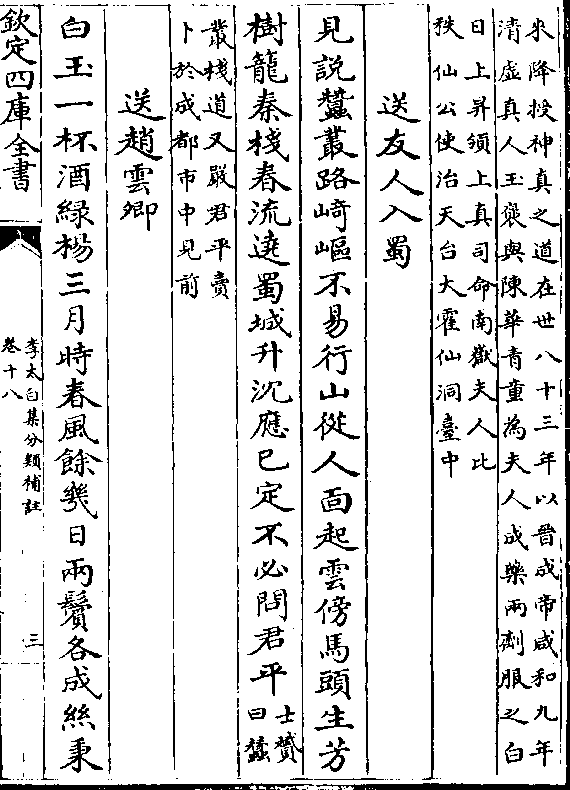 來降授神真之道在世八十三年以晉成帝咸和九年
清虛真人王褒與陳華青童為夫人成藥兩劑服之白
日上昇領上真司命南嶽夫人比
秩仙公使治天台大霍仙洞臺中
送友人入蜀
見説蠶叢路崎嶇不易行山從人面起雲傍馬頭生芳
樹龍秦棧春流遶蜀城升沉應已定不必問君平
士贇
曰蠶
叢棧道又嚴君平賣
卜於成都市中見前
送趙雲卿
白玉一杯酒緑楊三月時春風餘㡬日兩鬢各成絲秉
欽定四庫全書
李太白集分類補註
卷十八
三